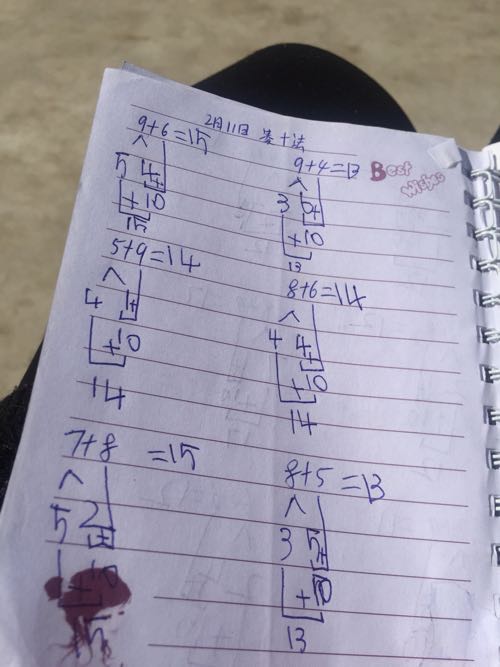 2月11日 凑十法
Best
Wishes
9+6=15
5 4+
+10
15
9+4=13
3 6+
+10
13
5+9=14
4 1+
+10
14
8+6=14
4 4+
+10
14
7+8=15
5 2+
+10
15
8+5=13
3 5+
+10
13